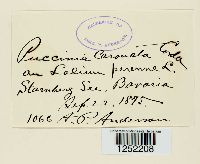 Puccinia Coronata Corda
on Lolium perenne L.
Starnberg See, Bavaria
Sep. 22, 1895
1066 A. P. Anderson
1252208